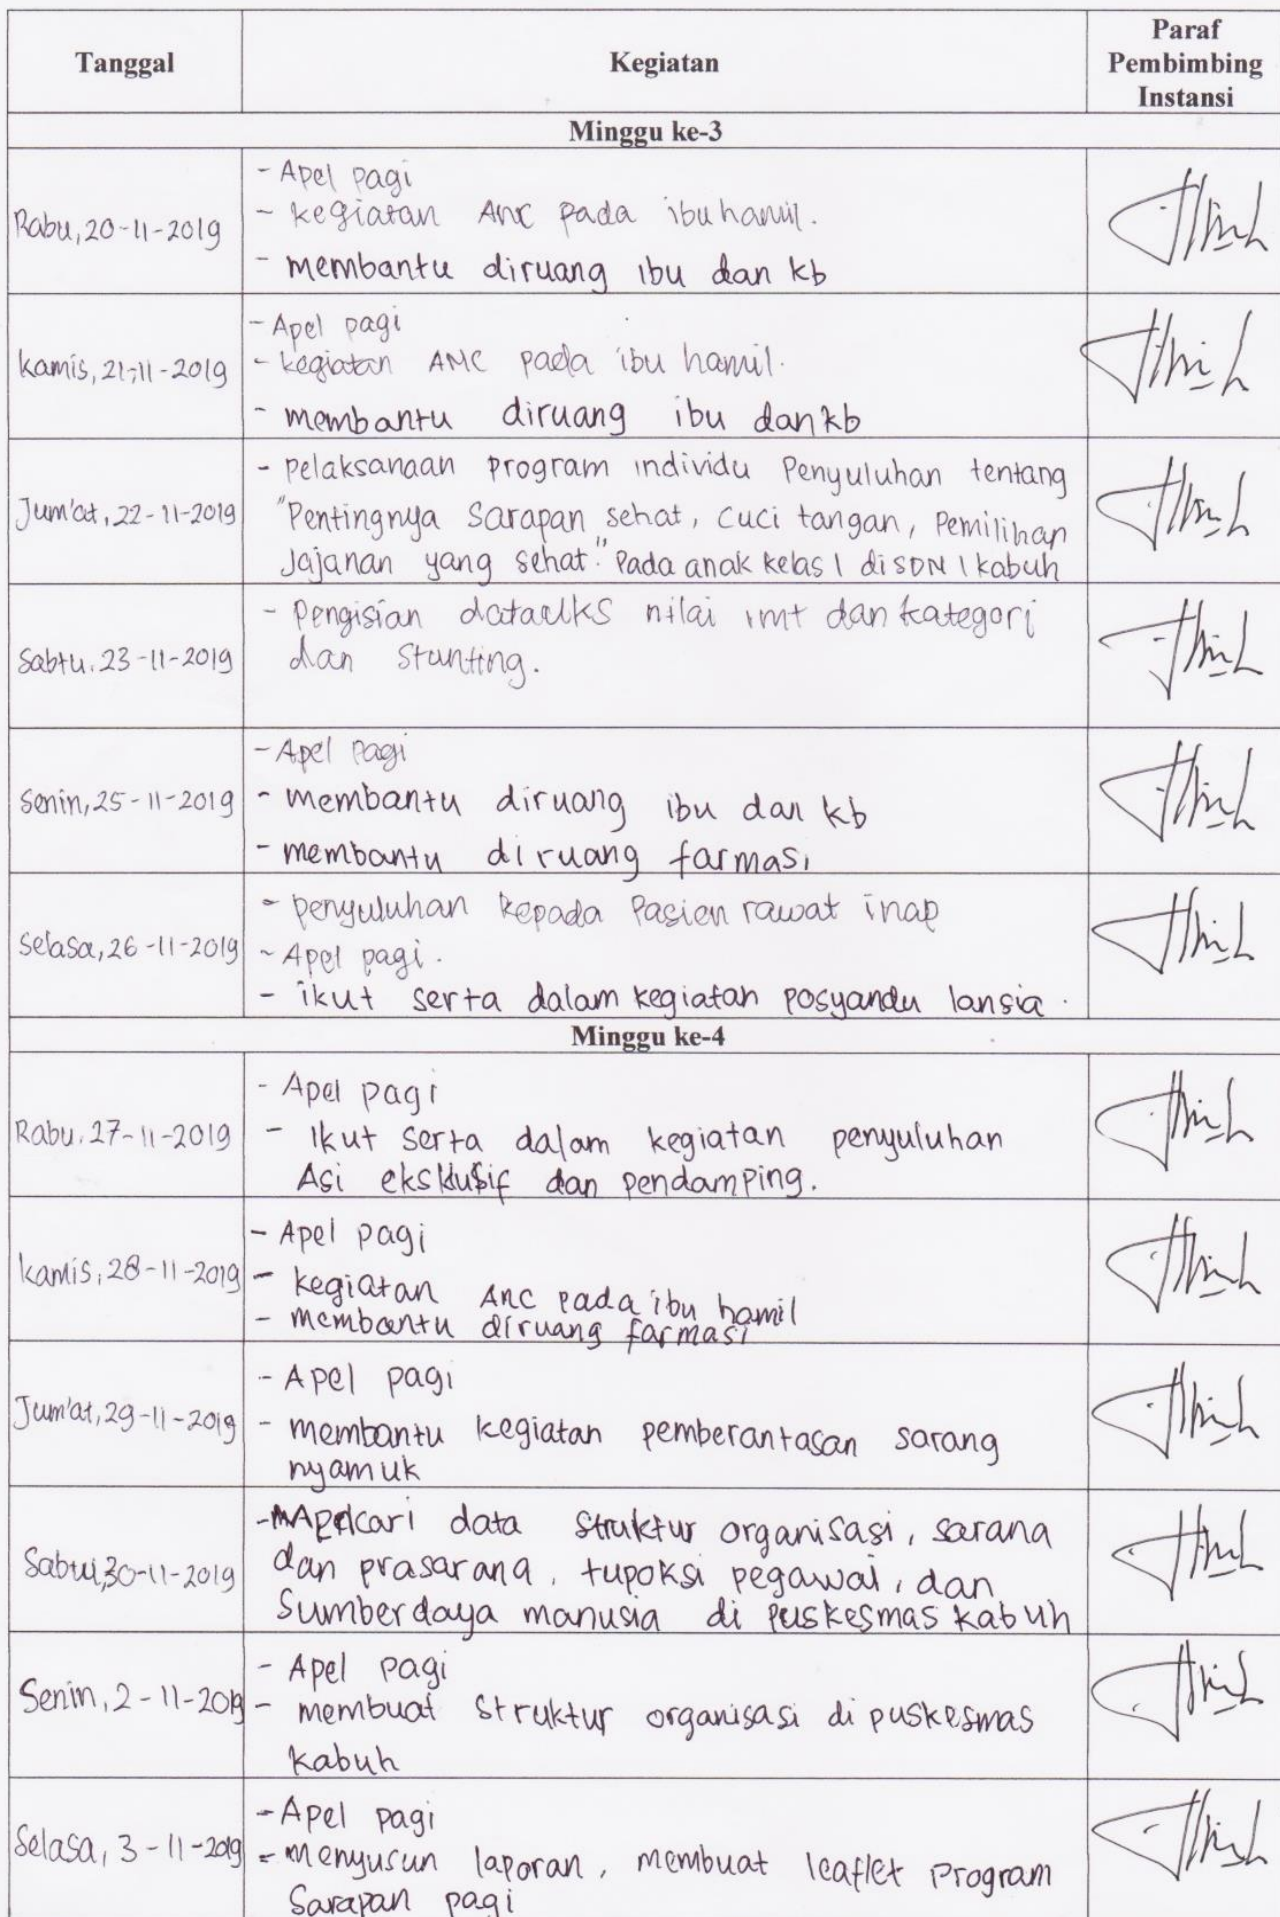 Tanggal
Kegiatan
Paraf
Pembimbing
Instansi
Minggu ke-3
Rabu, 20-11-2019
- Apel pagi
- kegiatan Anc pada ibu hamil.
- membantu diruang ibu dan kb
Kamis, 21-11-2019
- Apel pagi
- kegiatan ANC pada ibu hamil.
- membantu diruang ibu dan kb
Jum'at, 22-11-2019
- pelaksanaan program individu Penyuluhan tentang
"Pentingnya Sarapan sehat, cuci tangan, Pemilihan
Jajanan yang sehat." Pada anak kelas 1 di SDN 1 kabuh
Sabtu, 23-11-2019
- Pengisian data nilai imt dan kategori
dan Stunting.
Senin, 25-11-2019
- Apel Pagi
- membantu diruang ibu dan kb
- membantu diruang farmasi
Selasa, 26-11-2019
- penyuluhan kepada Pasien rawat inap
- Apel pagi.
- ikut serta dalam kegiatan posyandu lansia.
Minggu ke-4
Rabu, 27-11-2019
- Apel pagi
- Ikut serta dalam kegiatan penyuluhan
Asi eksklusif dan pendamping.
Kamis, 28-11-2019
- Apel pagi
- kegiatan ANC pada ibu hamil
- membantu diruang farmasi
Jum'at, 29-11-2019
- Apel pagi
- membantu kegiatan pemberantasan sarang
nyamuk
Sabtu, 30-11-2019
- data struktur organisasi, sarana
dan prasarana, tupoksi pegawai, dan
Sumber daya manusia di puskesmas kabuh
Senin, 2-11-2019
- Apel pagi
- membuat struktur organisasi di puskesmas
kabuh
Selasa, 3-11-2019
- Apel pagi
- menyusun laporan, membuat leaflet Program
Sarapan pagi